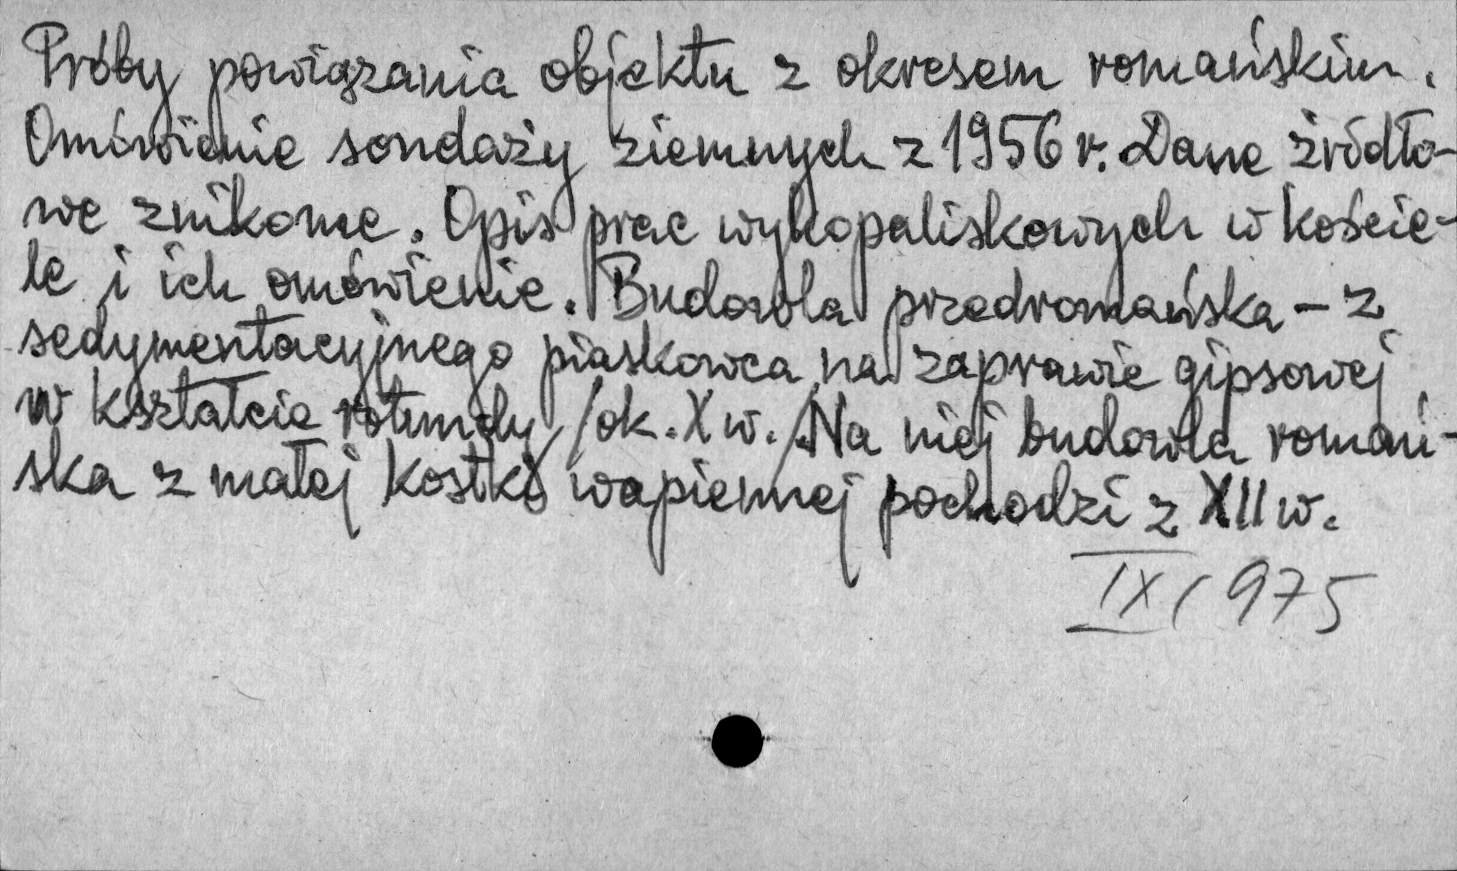 Próby powiązania objektu z okresem romańskim.
Omówienie sondaży ziemnych z 1956 r. Dane źródło-
we znikome. Opis prac wykopaliskowych w koście-
le i ich omówienie. Budowla przedromańska – z
sedymentacyjnego piaskowca na zaprawie gipsowej
w kształcie rotundy /ok. X w./ Na niej budowla romań-
ska z małej kostki wapiennej pochodzi z XII w.
IX 1975